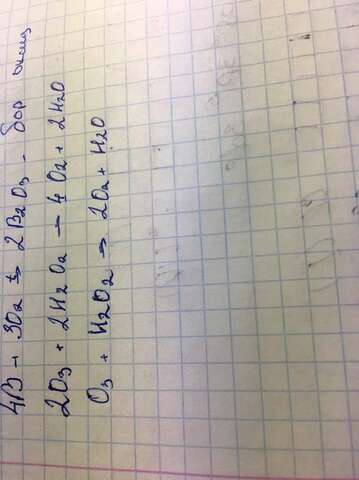 4B + 3O2 → 2B2O3 - бор оксид
2O3 + 2H2O2 → 4O2 + 2H2O
O3 + H2O2 → 2O2 + H2O